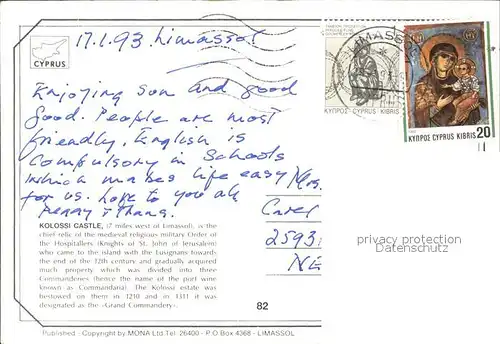 17.1.93. Limassol
CYPRUS
Enjoying sun and good
food. People are most
friendly. English is
Compulsory in Schools
which makes life easy
for us. Love to you all
KOLOSSI CASTLE, (7 miles west of Limassol), is the
chief relic of the medieval religious military Order of
the Hospitallers (Knights of St. John of Jerusalem)
who came to the island with the Lusignans towards
the end of the 12th century and gradually acquired
much property which was divided into three
Commanderies (hence the name of the port wine
known as Commandaria). The Kolossi estate was
bestowed on them in 1210 and in 1311 it was
designated as the «Grand Commandery».
82
Published - Copyright by MONA Ltd. Tel. 26400 - P.O Box 4368 - LIMASSOL
LIMASSOL
ΚΥΠΡΟΣ CYPRUS KIBRIS
ΚΥΠΡΟΣ CYPRUS KIBRIS 20
Mrs.
2593
NE
privacy protection
Datenschutz